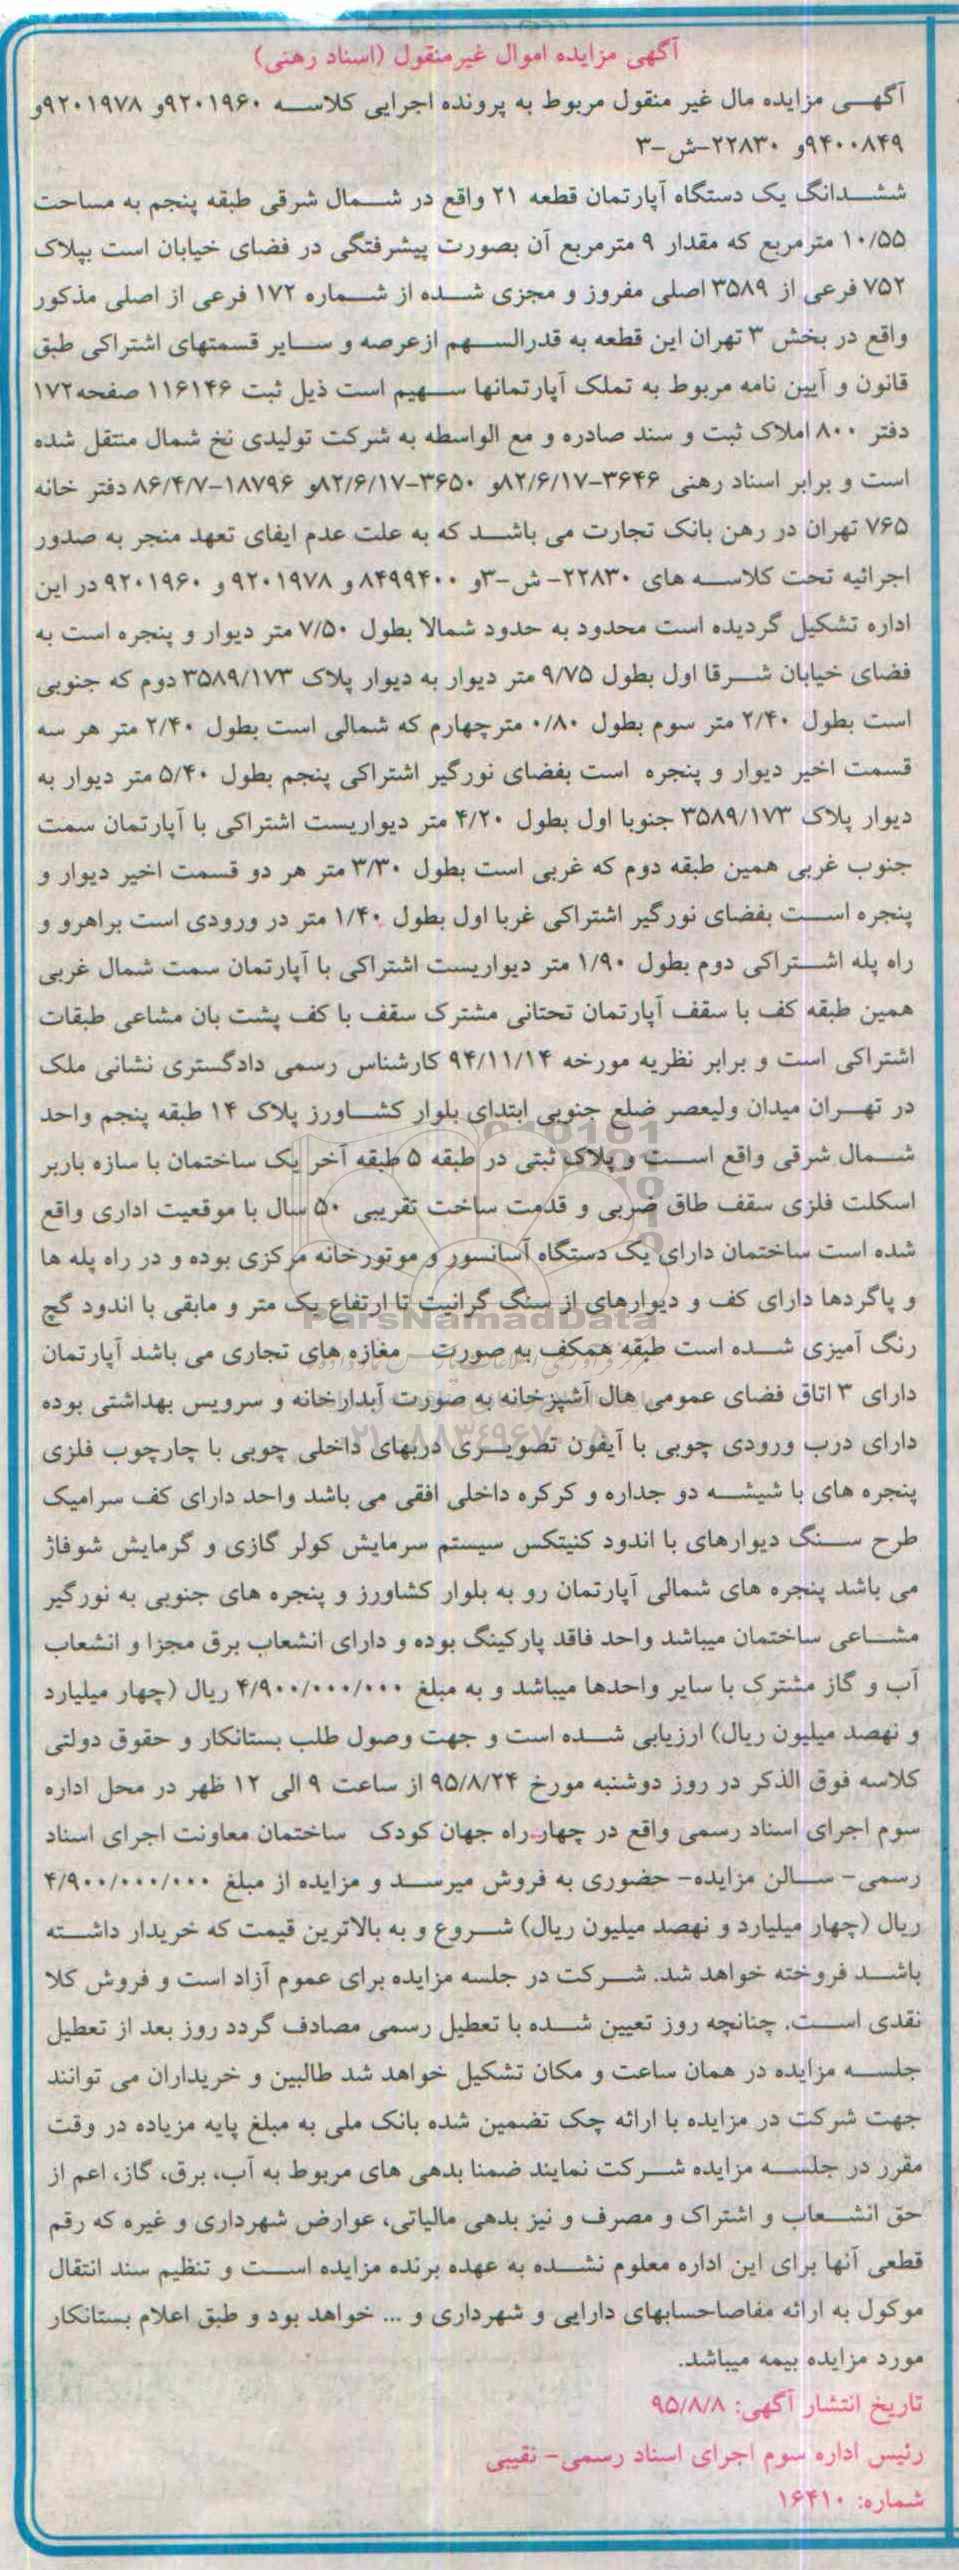 آگهی مزایده اموال غیرمنقول (اسناد رهنی)
آگهـی مزایده مال غیر منقول مربوط به پرونده اجرایی کلاسـه ۹۲۰۱۹۶۰و ۹۲۰۱۹۷۸و
۹۴۰۰۸۴۹و ۲۲۸۳۰-ش-۳
ششـدانگ یک دستگاه آپارتمان قطعه ۲۱ واقع در شـمال شرقی طبقه پنجم به مساحت
۱۰/۵۵ مترمربع که مقدار ۹ مترمربع آن بصورت پیشرفتگی در فضای خیابان است بپلاک
۷۵۲ فرعی از ۳۵۸۹ اصلی مفروز و مجزی شـده از شـماره ۱۷۲ فرعی از اصلی مذکور
واقع در بخش ۳ تهران این قطعه به قدرالسـهم ازعرصه و سـایر قسمتهای اشتراکی طبق
قانون و آیین نامه مربوط به تملک آپارتمانها سـهیم است ذیل ثبت ۱۱۶۱۴۶ صفحه۱۷۲
دفتر ۸۰۰ املاک ثبت و سند صادره و مع الواسطه به شرکت تولیدی نخ شمال منتقل شده
است و برابر اسناد رهنی ۳۶۴۶-۸۲/۶/۱۷و ۳۶۵۰-۸۲/۶/۱۷و ۱۸۷۹۶-۸۶/۴/۷ دفتر خانه
۷۶۵ تهران در رهن بانک تجارت می باشـد که به علت عدم ایفای تعهد منجر به صدور
اجرائیه تحت کلاسـه های ۲۲۸۳۰- ش-۳و ۸۴۹۹۴۰۰ و ۹۲۰۱۹۷۸ و ۹۲۰۱۹۶۰ در این
اداره تشکیل گردیده است محدود به حدود شمالا بطول ۷/۵۰ متر دیوار و پنجره است به
فضای خیابان شـرقا اول بطول ۹/۷۵ متر دیوار به دیوار پلاک ۳۵۸۹/۱۷۳ دوم که جنوبی
است بطول ۲/۴۰ متر سوم بطول ۰/۸۰ مترچهارم که شمالی است بطول ۲/۴۰ متر هر سه
قسمت اخیر دیوار و پنجره است بفضای نورگیر اشتراکی پنجم بطول ۵/۴۰ متر دیوار به
دیوار پلاک ۳۵۸۹/۱۷۳ جنوبا اول بطول ۴/۲۰ متر دیواریست اشتراکی با آپارتمان سمت
جنوب غربی همین طبقه دوم که غربی است بطول ۳/۳۰ متر هر دو قسمت اخیر دیوار و
پنجره اسـت بفضای نورگیر اشتراکی غربا اول بطول ۱/۴۰ متر در ورودی است براهرو و
راه پله اشـتراکی دوم بطول ۱/۹۰ متر دیواریست اشتراکی با آپارتمان سمت شمال غربی
همین طبقه کف با سقف آپارتمان تحتانی مشترک سقف با کف پشت بان مشاعی طبقات
اشتراکی است و برابر نظریه مورخه ۹۴/۱۱/۱۴ کارشناس رسمی دادگستری نشانی ملک
در تهـران میدان ولیعصر ضلع جنوبی ابتدای بلوار کشـاورز پلاک ۱۴ طبقه پنجم واحد
شـمال شرقی واقع اسـت و پلاک ثبتی در طبقه ۵ طبقه آخر یک ساختمان با سازه باربر
اسکلت فلزی سقف طاق ضربی و قدمت ساخت تقریبی ۵۰ سال با موقعیت اداری واقع
شده است ساختمان دارای یک دستگاه آسانسور و موتورخانه مرکزی بوده و در راه پله ها
و پاگردها دارای کف و دیوارهای از سنگ گرانیت تا ارتفاع یک متر و مابقی با اندود گچ
ParsNamadData
رنگ آمیزی شـده است طبقه همکف به صورت مغازه های تجاری می باشد آپارتمان
دارای ۳ اتاق فضای عمومی هال آشپزخانه به صورت آبدارخانه و سرویس بهداشتی بوده
دارای درب ورودی چوبی با آیفون تصویـری دربهای داخلی چوبی با چارچوب فلزی
پنجره های با شیشـه دو جداره و کرکره داخلی افقی می باشد واحد دارای کف سرامیک
طرح سـنگ دیوارهای با اندود کنیتکس سیستم سرمایش کولر گازی و گرمایش شوفاژ
می باشد پنجره های شمالی آپارتمان رو به بلوار کشاورز و پنجره های جنوبی به نورگیر
مشـاعی ساختمان میباشد واحد فاقد پارکینگ بوده و دارای انشعاب برق مجزا و انشعاب
آب و گاز مشترک با سایر واحدها میباشد و به مبلغ ۴/۹۰۰/۰۰۰/۰۰۰ ریال (چهار میلیارد
و نهصد میلیون ریال) ارزیابی شـده است و جهت وصول طلب بستانکار و حقوق دولتی
کلاسه فوق الذکر در روز دوشنبه مورخ ۹۵/۸/۲۴ از ساعت ۹ الی ۱۲ ظهر در محل اداره
سوم اجرای اسناد رسمی واقع در چهارراه جهان کودک ساختمان معاونت اجرای اسناد
رسمی- سـالن مزایده- حضوری به فروش میرسـد و مزایده از مبلغ ۴/۹۰۰/۰۰۰/۰۰۰
ریال (چهار میلیارد و نهصد میلیون ریال) شـروع و به بالاترین قیمت که خریدار داشـته
باشـد فروخته خواهد شد. شـرکت در جلسه مزایده برای عموم آزاد است و فروش کلا
نقدی اسـت. چنانچه روز تعیین شـده با تعطیل رسمی مصادف گردد روز بعد از تعطیل
جلسـه مزایده در همان ساعت و مکان تشکیل خواهد شد طالبین و خریداران می توانند
جهت شرکت در مزایده با ارائه چک تضمین شده بانک ملی به مبلغ پایه مزیاده در وقت
مقرر در جلسـه مزایده شـرکت نمایند ضمنا بدهی های مربوط به آب، برق، گاز، اعم از
حق انشـعاب و اشتراک و مصرف و نیز بدهی مالیاتی، عوارض شهرداری و غیره که رقم
قطعی آنها برای این اداره معلوم نشـده به عهده برنده مزایده اسـت و تنظیم سند انتقال
موکول به ارائه مفاصاحسابهای دارایی و شهرداری و ... خواهد بود و طبق اعلام بستانکار
مورد مزایده بیمه میباشد.
تاریخ انتشار آگهی: ۹۵/۸/۸
رئیس اداره سوم اجرای اسناد رسمی- نقیبی
شماره: ۱۶۴۱۰